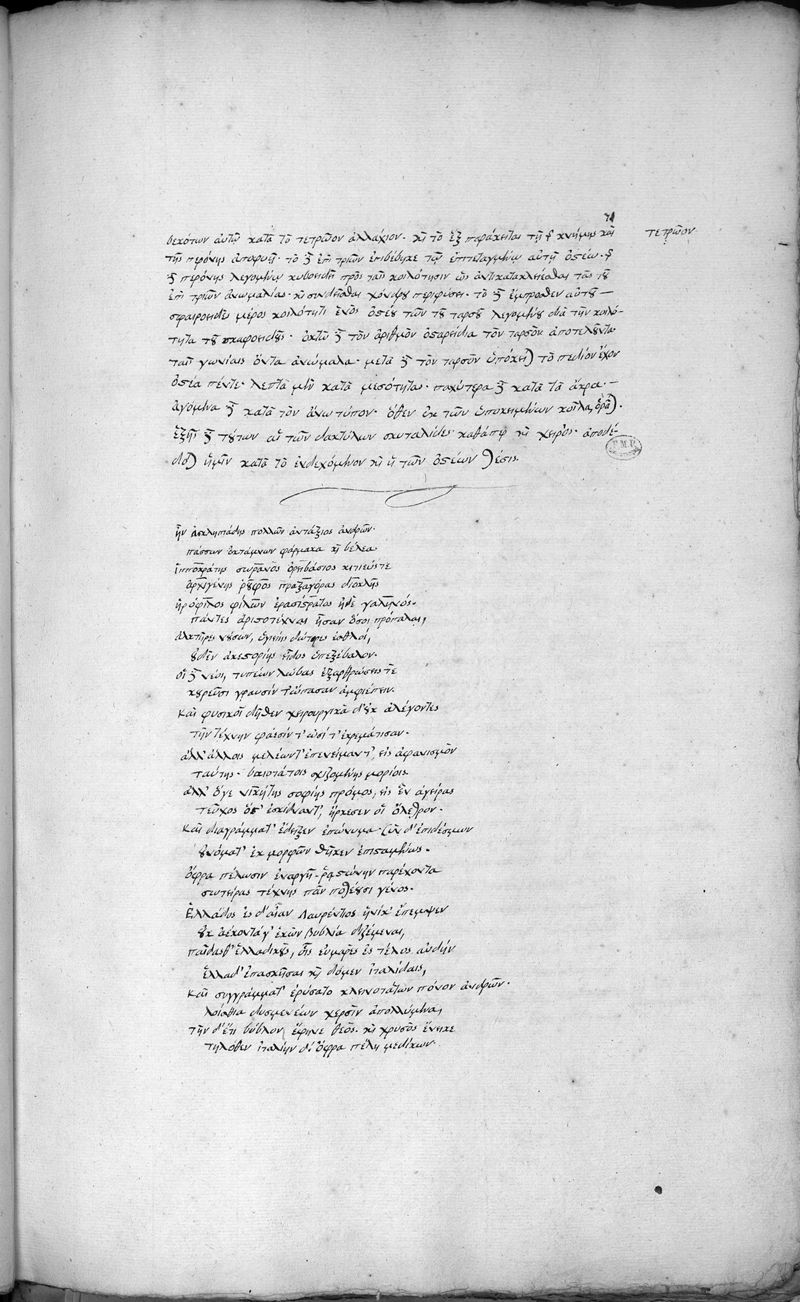 βεκότων αὐτῷ κατὰ τὸ τετρῶον ἀλλάχιον. καὶ τὸ ἕξ παράκειται τῇ τ κνήμης καὶ
τετρῶον
τῆς περόνης ἀποφυῇ. τὸ δὲ ἐπὶ τριῶν ἐπιβέβηκε τῷ ὑποτεταγμένῳ αὐτῇ ὀστέῳ.
δὲ περόνης λεγομένῳ κυβοειδεῖ πρὸς ταῖς κοιλότησιν ὡς ἀντικατακλείεσθαι τὰς
ἐπὶ τριῶν ἀνωμαλίας. καὶ συνδεῖσθαι χόνδρου περιφύσει. τὸ δὲ ἔμπροσθεν αὐτοῦ
σφαιροειδὲς μέρος κοιλότητι ἑνὸς ὀστέου τῶν τοῦ ταρσοῦ λεγομένου διὰ τὴν κοιλό-
τητα τοῦ σκαφοειδοῦς. ὀκτὼ δὲ τὸν ἀριθμὸν ὀσταρείδια τὸν ταρσὸν ἀποτελοῦντα
ταῖς γωνίαις ὄντα ἀνώμαλα. μετὰ δὲ τὸν ταρσὸν ὑπόκειται τὸ πεδίον ἔχον
ὀστέα πέντε. λεπτὰ μὲν κατὰ μεσότητα. παχύτερα δὲ κατὰ τὰ ἄκρα.
ἀγόμενα δὲ κατὰ τὸν ἄνω τύπον. ὅθεν ἐκ τῶν ὑποκειμένων κοῖλα, ὁρᾶται.
ἑξῆς δὲ τούτων αἱ τῶν δακτύλων σκυταλίδες καθάπερ καὶ χειρός. ἀποδέ-
δοται ἡμῖν κατὰ τὸ ἐνδεχόμενον καὶ ἡ τῶν ὀστέων θέσις.
ἦν ἀσκληπιάδης πολλῶν ἀντάξιος ἀνδρῶν.
πάσσων ἐκτάμνων φάρμακα καὶ βέλεα
ἱπποκράτης σωρανὸς ὀρειβάσιος κιτιεύς τε
ἀρχιγένης ῥοῦφος πραξαγόρας διοκλῆς
ἡρόφιλος φίλων ἐρασίστρατος ἠδὲ γαληνός.
πάντες ἀριστοτέχναι ἦσαν ὅσοι πρόπαλαι,
ἀλκτῆρες νούσων, ὑγιείης δώτορες ἐσθλοί,
οὐδὲν ἀκεστορίης εἶδος ὑπεξέβαλον.
οἱ δὲ νέοι, τυπέων λώβας ἐξαρθρώσεις τε
κουρεῦσι γραυσίν τ' ὤπασαν ἀμφιέπειν.
καὶ φυσικοὶ δῆθεν χειρουργικὰ δ' οὐκ ἀλέγοντες
τὴν τέχνην φάεσίν τ' ὠσί τ' ἐχρημάτισαν.
ἀλλ' ἄλλοις μελέων τ' ἐπενείμαντ', εἰς ἀφανισμὸν
ταύτης. βαιοτάτοις σχιζομένης μορίοις.
ἀλλ' ὅγε νικήτης σοφίης πρόμος, εἰς ἓν ἀγείρας
τεῦχος ὅσ' ἐσκίδναντ', ἤρκεσεν οἱ ὄλεθρον.
καὶ διαγράμματ' ἔδειξεν ἐπώνυμα. τῶν δ' ἐπιδέσμων
οὐνόματ' ἐκ μορφῶν θῆκεν ἐπισταμένως.
ὄφρα πέλωσιν ἐναργῆ. ῥᾳστώνην παρέχοντα
σωτείρας τέχνης πᾶν ποθέουσι γένος.
Ἑλλάδος ἐς δ' αἶαν Λαυρέντιος ἡνίκ' ἔπεμψεν
οὐκ ἀέκοντά γ' ἑκὼν βυβλία διζέμεναι,
παῖδας θ' ἑλλαδικοὺς, οἷς εὐμαρὲς ἐς τέλος αὐδὴν
ἑλλάδ' ἐπασκῆσαι καὶ δόμεν ἰταλίδαις,
καὶ συγγράμματ' ἐρύσατο κλεινοτάτων πόνον ἀνδρῶν.
λοίσθια δυσμενέων χερσὶν ἀπολλύμενα,
τὴν δ' ἔτι βύβλον, ἔφηνε θεὸς. καὶ χρυσὸς ἔνεικε
τηλόθεν ἰταλίην δι' ὄφρα πέλῃ μεδίκων.